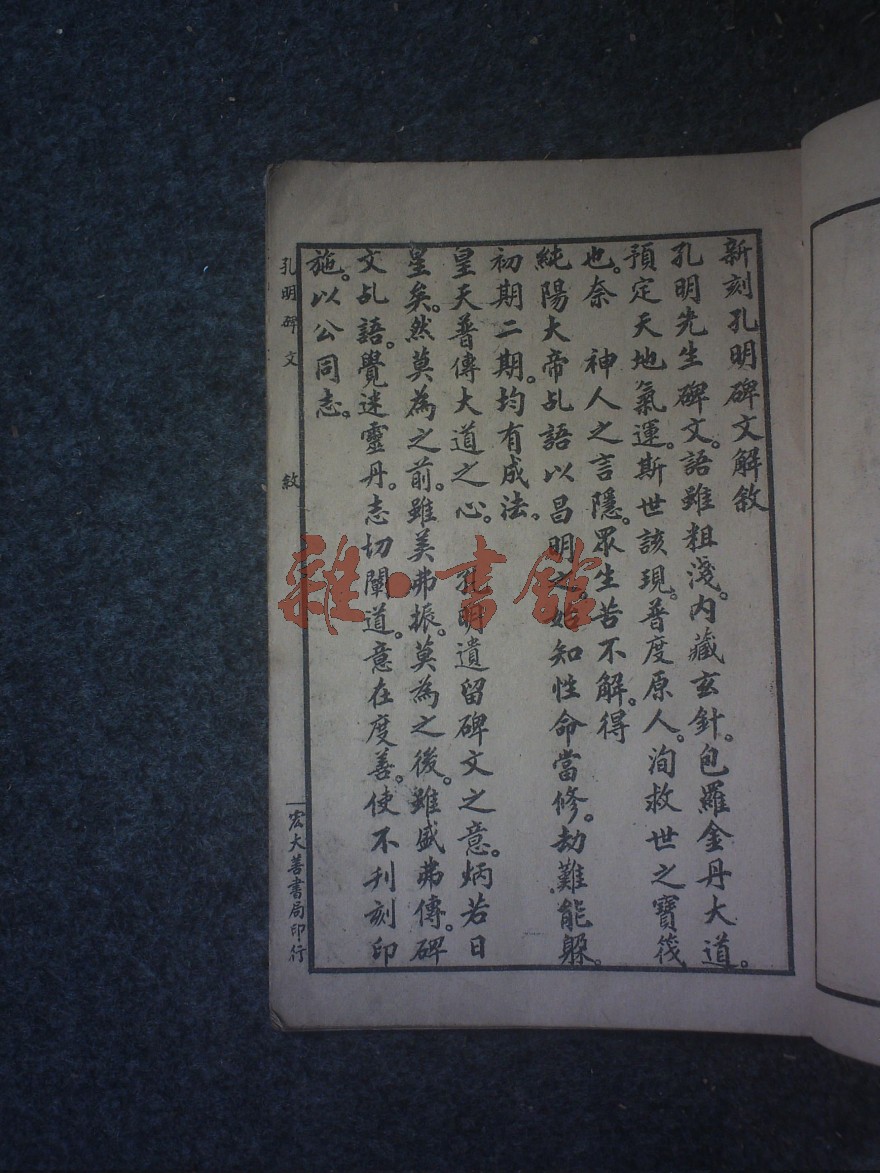 新刻孔明碑文解敘
孔明先生碑文。語雖粗淺。內藏玄針。包羅金丹大道。
預定天地氣運。斯世該現。普度原人。洵救世之寶筏
也。奈　神人之言隱。眾生苦不解。得
純陽大帝乩語以昌明之。始知性命當修。劫難能躲。
初期二期。均有成法。
皇天普傳大道之心。　孔明遺留碑文之意。炳若日
星矣。然莫為之前。雖美弗振。莫為之後。雖盛弗傳。碑
文乩語。覺迷靈丹。志切闡道。意在度善。使不刊刻印
施。以公同志。
孔明碑文　敘　一　宏大善書局印行
雜·書館